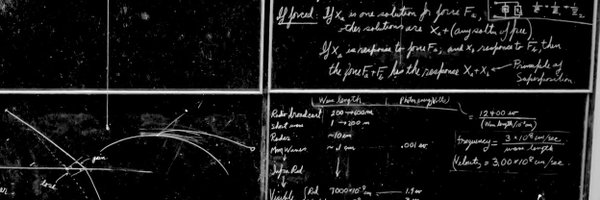 If forced: If Xa is one solution for force Fa,
other solutions are Xa + (any soltn of free)
If Xa is response to force Fa; and Xb response to Fb, then
the force Fa + Fb has the response Xa + Xb ← Principle of
Superposition
Wave lengths
Radio broadcast 200 → 600m
Short wave 1 → 200m
Radar ~10cm
Micro Waves ~.1 cm .001 ev
Infra Red
Visible { Red 7000×10⁻⁸ 1.9 ev
= 12400 ev
(Wave length/10⁻⁸cm)
frequency = 3×10¹⁰ cm/sec
wave length
Velocity = 3.00×10¹⁰ cm/sec.
gain
lose